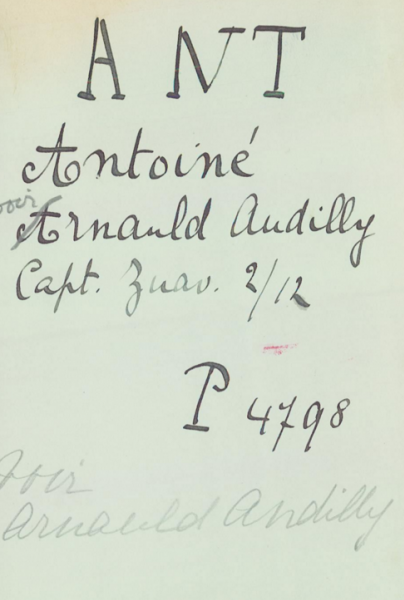 ANT
Antoiné
voir
Arnauld Audilly
Capt. Zuav. 2/12
P 4798
voir
Arnauld Andilly